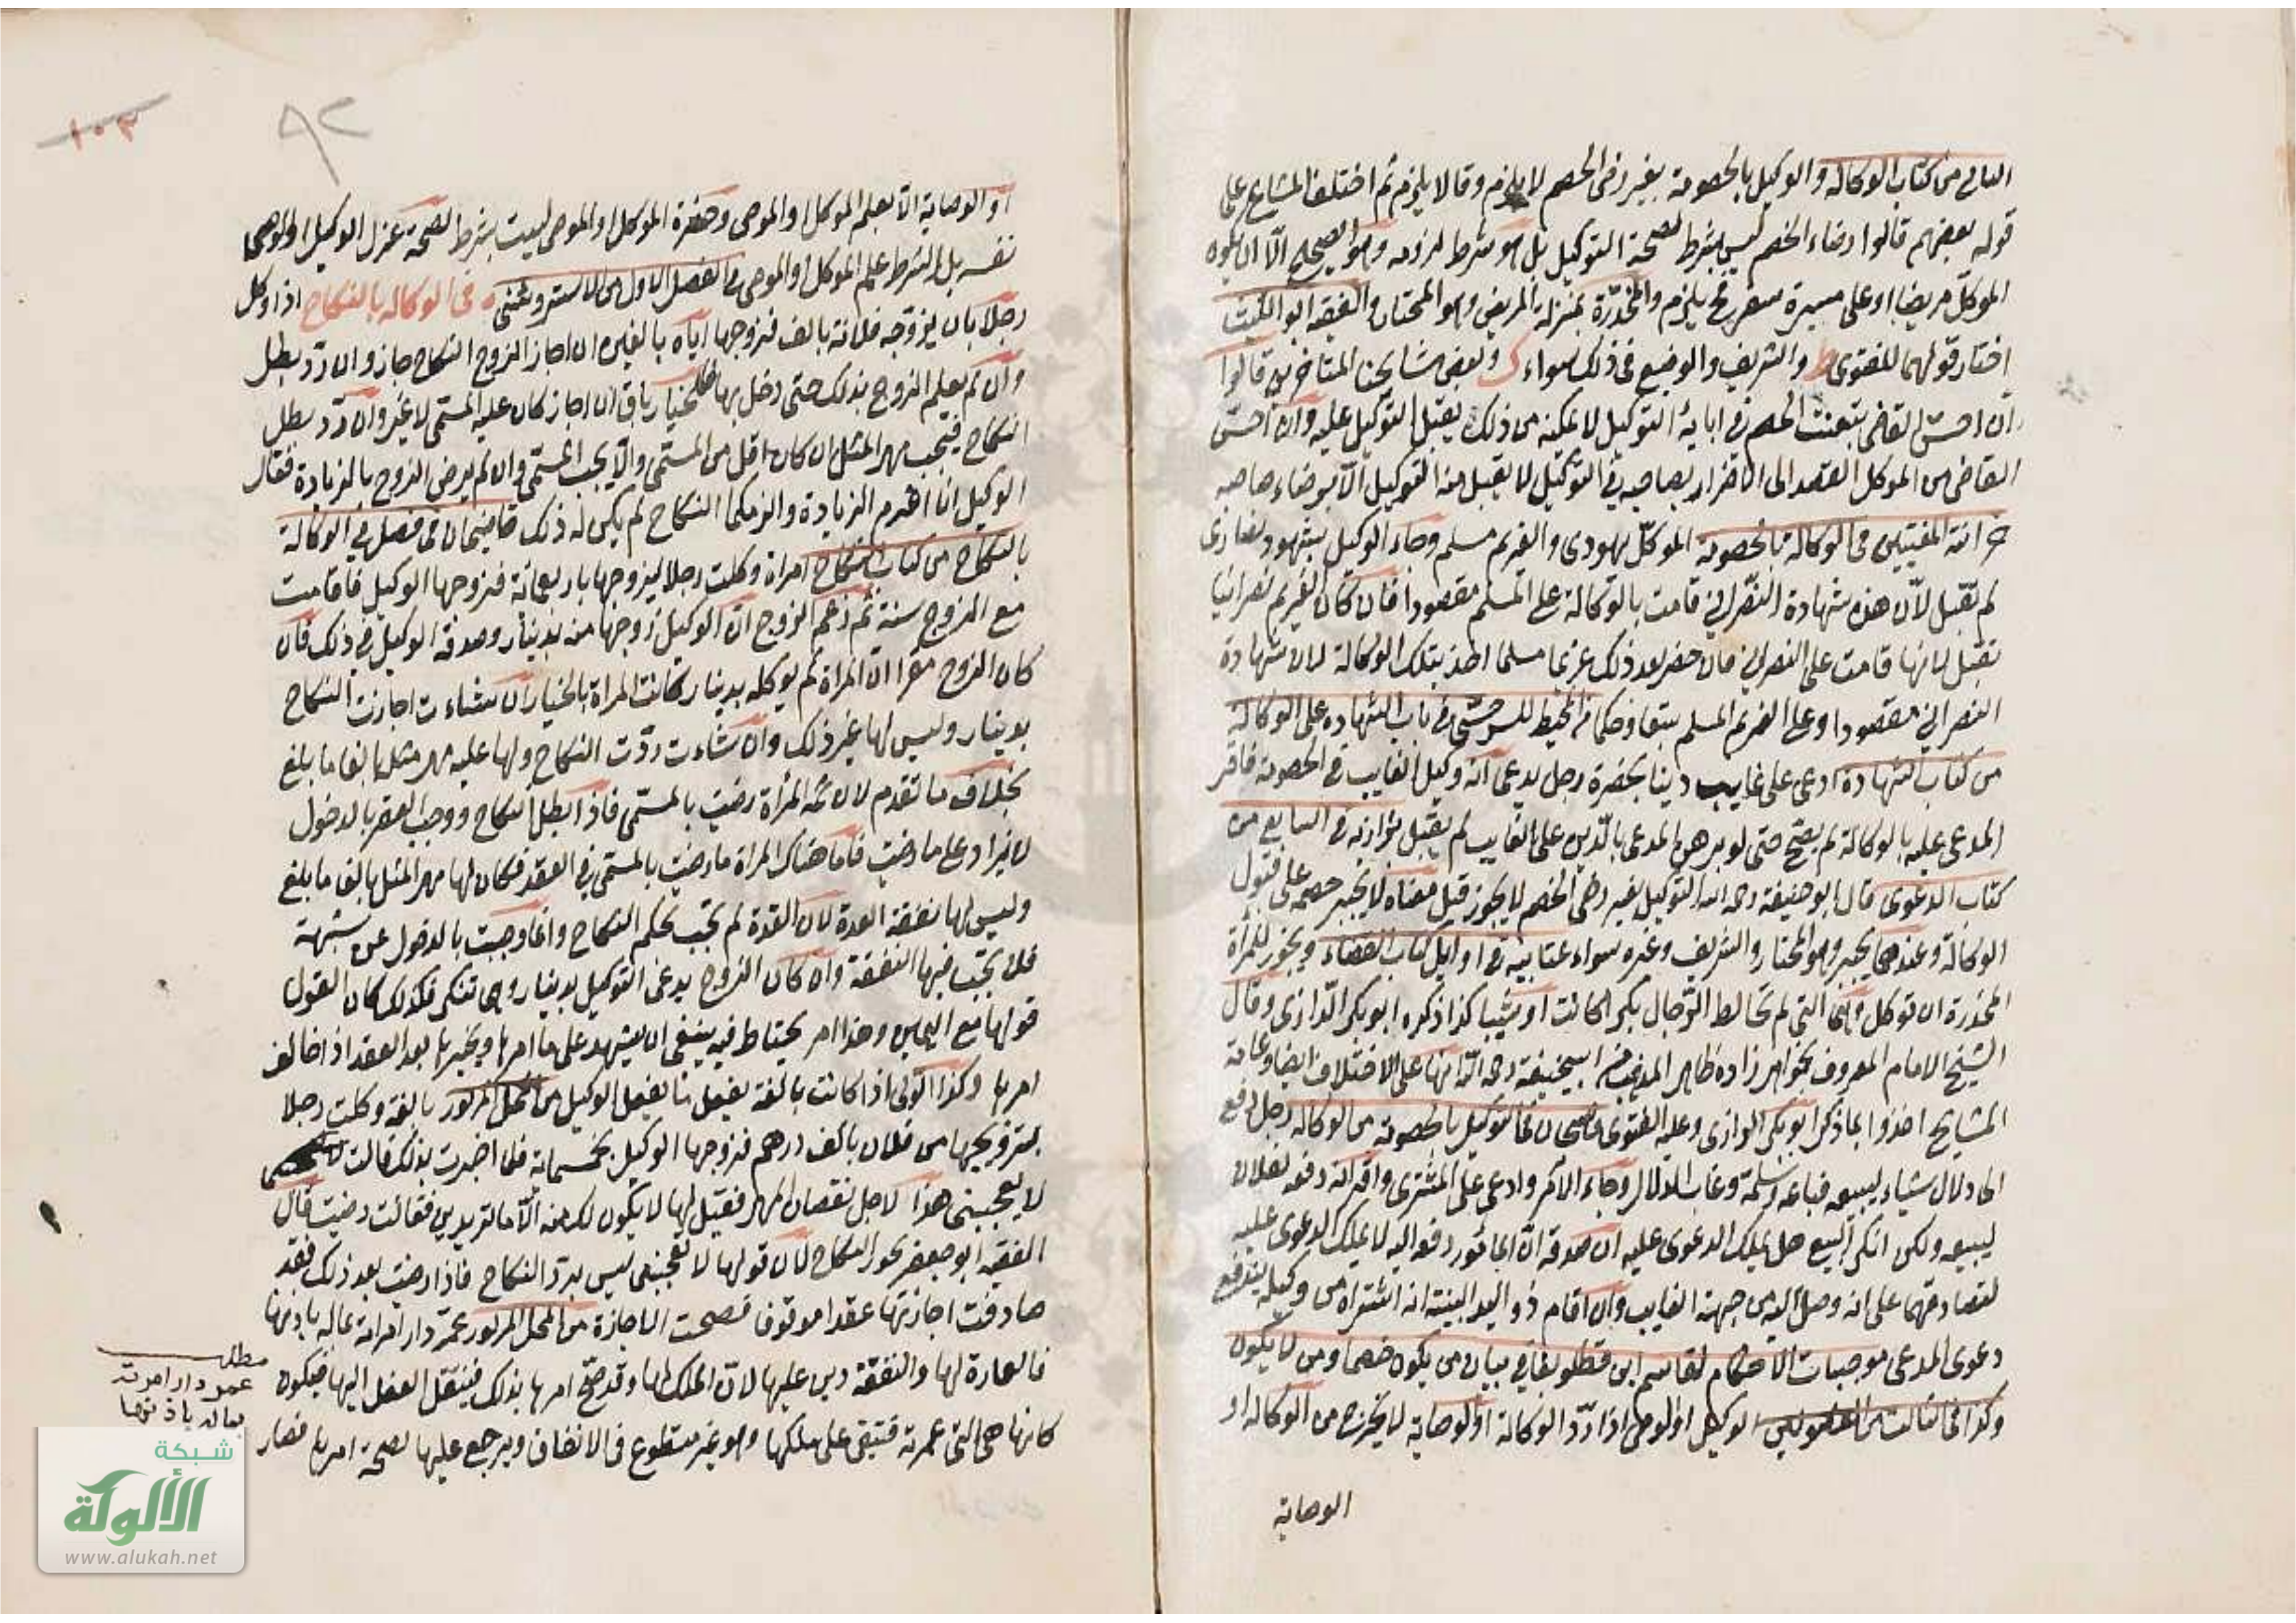 الثاني من كتاب الوكالة والوكيل بالخصومة بغير رضى الخصم لا يلزم وقالا يلزم ثم اختلف المشايخ على
قوله بعضهم قالوا رضاء الخصم ليس بشرط لصحة التوكيل بل هو شرط لزومه وهو الصحيح الا ان يكون
الموكل مريضا او على مسيرة سفر فح يلزم والمخدرة بمنزلة المريض وهو المختار والفقيه ابو الليث
اختار قولهما للفتوى ط والشريف والوضيع في ذلك سواء ك وبعض مشايخنا المتاخرين قالوا
ان احس القاضي بتعنت الخصم في اباية التوكيل لا يمكنه من ذلك يقبل التوكيل عليه وان احس
القاضي من الموكل القصد الى الاضرار بصاحبه في التوكيل لا يقبل منه التوكيل الا برضاء صاحبه
خزانة المفتيين في الوكالة بالخصومة الموكل يهودي والغريم مسلم وجاء الوكيل بشهود نصارى
لم تقبل لان هذه شهادة النصراني قامت بالوكالة على المسلم مقصودا فان كان الغريم نصرانيا
تقبل لانها قامت على النصراني فان حضر بعد ذلك غريما مسلما اخذ بتلك الوكالة لان شهادة
النصراني مقصودا وعلى الغريم المسلم تبعا وحكما في المحيط للسرخسي في باب الشهادة على الوكالة
من كتاب الشهادة ادعى على غايب دينا بحضرة رجل يدعى انه وكيل الغايب في الخصومة فاقر
المدعى عليه بالوكالة لم يصح حتى لو برهن المدعى بالدين على الغايب لم يقبل بزازيه في السابع من
كتاب الدعوى قال ابو حنيفة رحمه الله التوكيل بغير رضى الخصم لا يجوز قيل معناه لا يجبر خصمه على قبول
الوكالة وعندهما يجبر وهو المختار والشريف وغيره سواء عتابيه في اوايل كتاب القضاء ويجوز للمرأة
المخدرة ان توكل وهي التي لم تخالط الرجال بكرا كانت او ثيبا كذا ذكره ابو بكر الرازي وقال
الشيخ الامام المعروف بخواهر زاده ظاهر المذهب عن ابيحنيفة رحمه الله انها على الاختلاف ايضا وعامة
المشايخ اخذوا بما ذكر ابو بكر الرازي وعليه الفتوى قاضيخان في التوكيل بالخصومة من الوكالة رجل دفع
الى دلال شياء ليبيعه فباعه وسلمه وغاب الدلال وجاء الامر وادعى على المشترى واقر انه دفعه لفلان
ليبيعه ولكن انكر البيع هل يملك الدعوى عليه ان صدقه ان المامور دفعه اليه لا يملك الدعوى عليه
لتصادقهما على انه وصل اليه من جهة الغايب وان اقام ذو اليد البينة انه اشتراه من وكيله يندفع
دعوى المدعى موجبات الاحكام لقاسم ابن قطلوبغا في بيان من يكون خصما ومن لا يكون
وكذا في الثالث من الوكيل او الوصى اذا رد الوكالة او الوصاية لا يخرج من الوكالة او
الوصاية
١٠٣
٩٢
او الوصاية الا بعلم الموكل او الموصى وحضرة الموكل او الموصى ليست بشرط لصحة عزل الوكيل او الوصى
نفسه بل الشرط علم الموكل او الموصى في الفصل الاول من الاستروشنى في الوكالة بالنكاح اذا وكل
رجلا بان يزوجه فلانة بالف فزوجها اياه بالفين ان اجاز الزوج النكاح جاز وان رد بطل
وان لم يعلم الزوج بذلك حتى دخل بها فالخيار باق ان اجاز كان عليه المسمى لا غير وان رد بطل
النكاح فيجب مهر المثل ان كان اقل من المسمى والا يجب المسمى وان لم يرض الزوج بالزيادة فقال
الوكيل انا اغرم الزيادة والزمكما النكاح لم يكن له ذلك قاضيخان في فصل في الوكالة
بالنكاح من كتاب النكاح امراة وكلت رجلا ليزوجها باربعمائة فزوجها الوكيل فاقامت
مع الزوج سنة ثم زعم الزوج ان الوكيل زوجها منه بدينار وصدقه الوكيل في ذلك فان
كان الزوج مقرا ان المراة لم يوكله بدينار كانت المراة بالخيار ان شاءت اجازت النكاح
بدينار وليس لها غير ذلك وان شاءت ردت النكاح ولها عليه مهر مثلها بالغا ما بلغ
بخلاف ما تقدم لان ثمه المرأة رضيت بالمسمى فاذا بطل النكاح ووجب العقر بالدخول
لا يزاد على ما رضيت فاما هناك المراة ما رضيت بالمسمى في العقد فكان لها مهر المثل بالغا ما بلغ
وليس لها نفقة العدة لان العدة لم تجب بحكم النكاح وانما وجبت بالدخول عن شبهة
فلا تجب فيها النفقة وان كان الزوج يدعى التوكيل بدينار وهي تنكر فكذلك كان القول
قولها مع اليمين وهذا امر يحتاط فيه ينبغى ان يشهد على ما امرها ويخيرها بعد العقد اذا خالف
امرها وكذا الولى اذا كانت بالغة يفعل ما يفعل الوكيل من المحل المزبور بالغة وكلت رجلا
بتزويجها من فلان بالف درهم فزوجها الوكيل بخمسمائة فلما اخبرت بذلك قالت
لا يعجبنى هذا لاجل نقصان المهر فقيل لها لا يكون لك منه الا ما تريدين فقالت رضيت قال
الفقيه ابو جعفر يجوز النكاح لان قولها لا يعجبنى ليس برد النكاح فاذا رضيت بعد ذلك فقد
صادفت اجازتها عقدا موقوفا فصحت الاجازة من المحل المزبور عمر دار امراته بماله باذنها
فالعمارة لها والنفقة دين عليها لان الملك لها وقد صح امرها بذلك فينتقل الفعل اليها فيكون
كانها هي التي عمرته فتبقى على ملكها وهو غير متطوع في الانفاق ويرجع عليها لصحة امرها فصار
مطلب
عمر دار امرته
بماله باذنها
شبكة
الألوكة
www.alukah.net